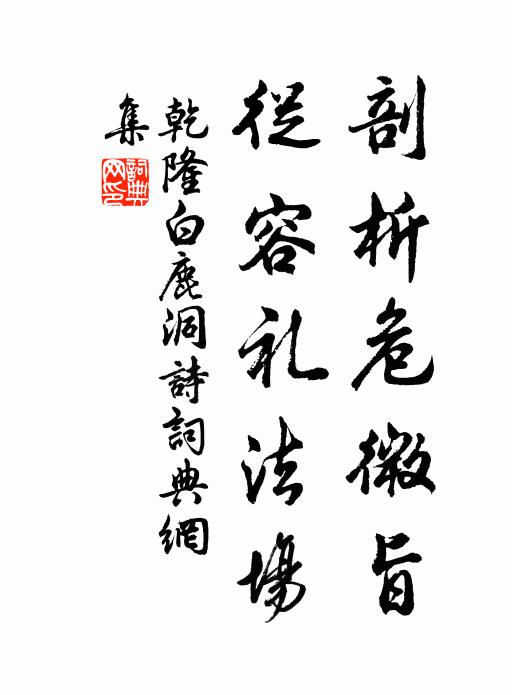 剖析危微旨
從容礼法場
乾隆白鹿洞詩詞典網
集
詞典网印